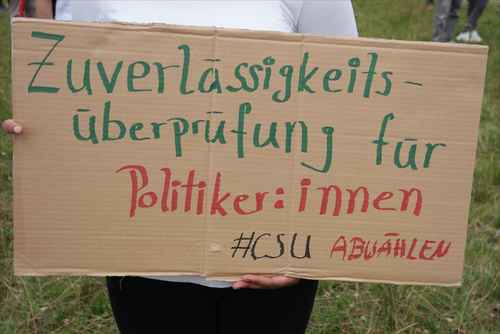 Zuverlässigkeits-
überprüfung für
Politiker:innen
#CSU ABWÄHLEN